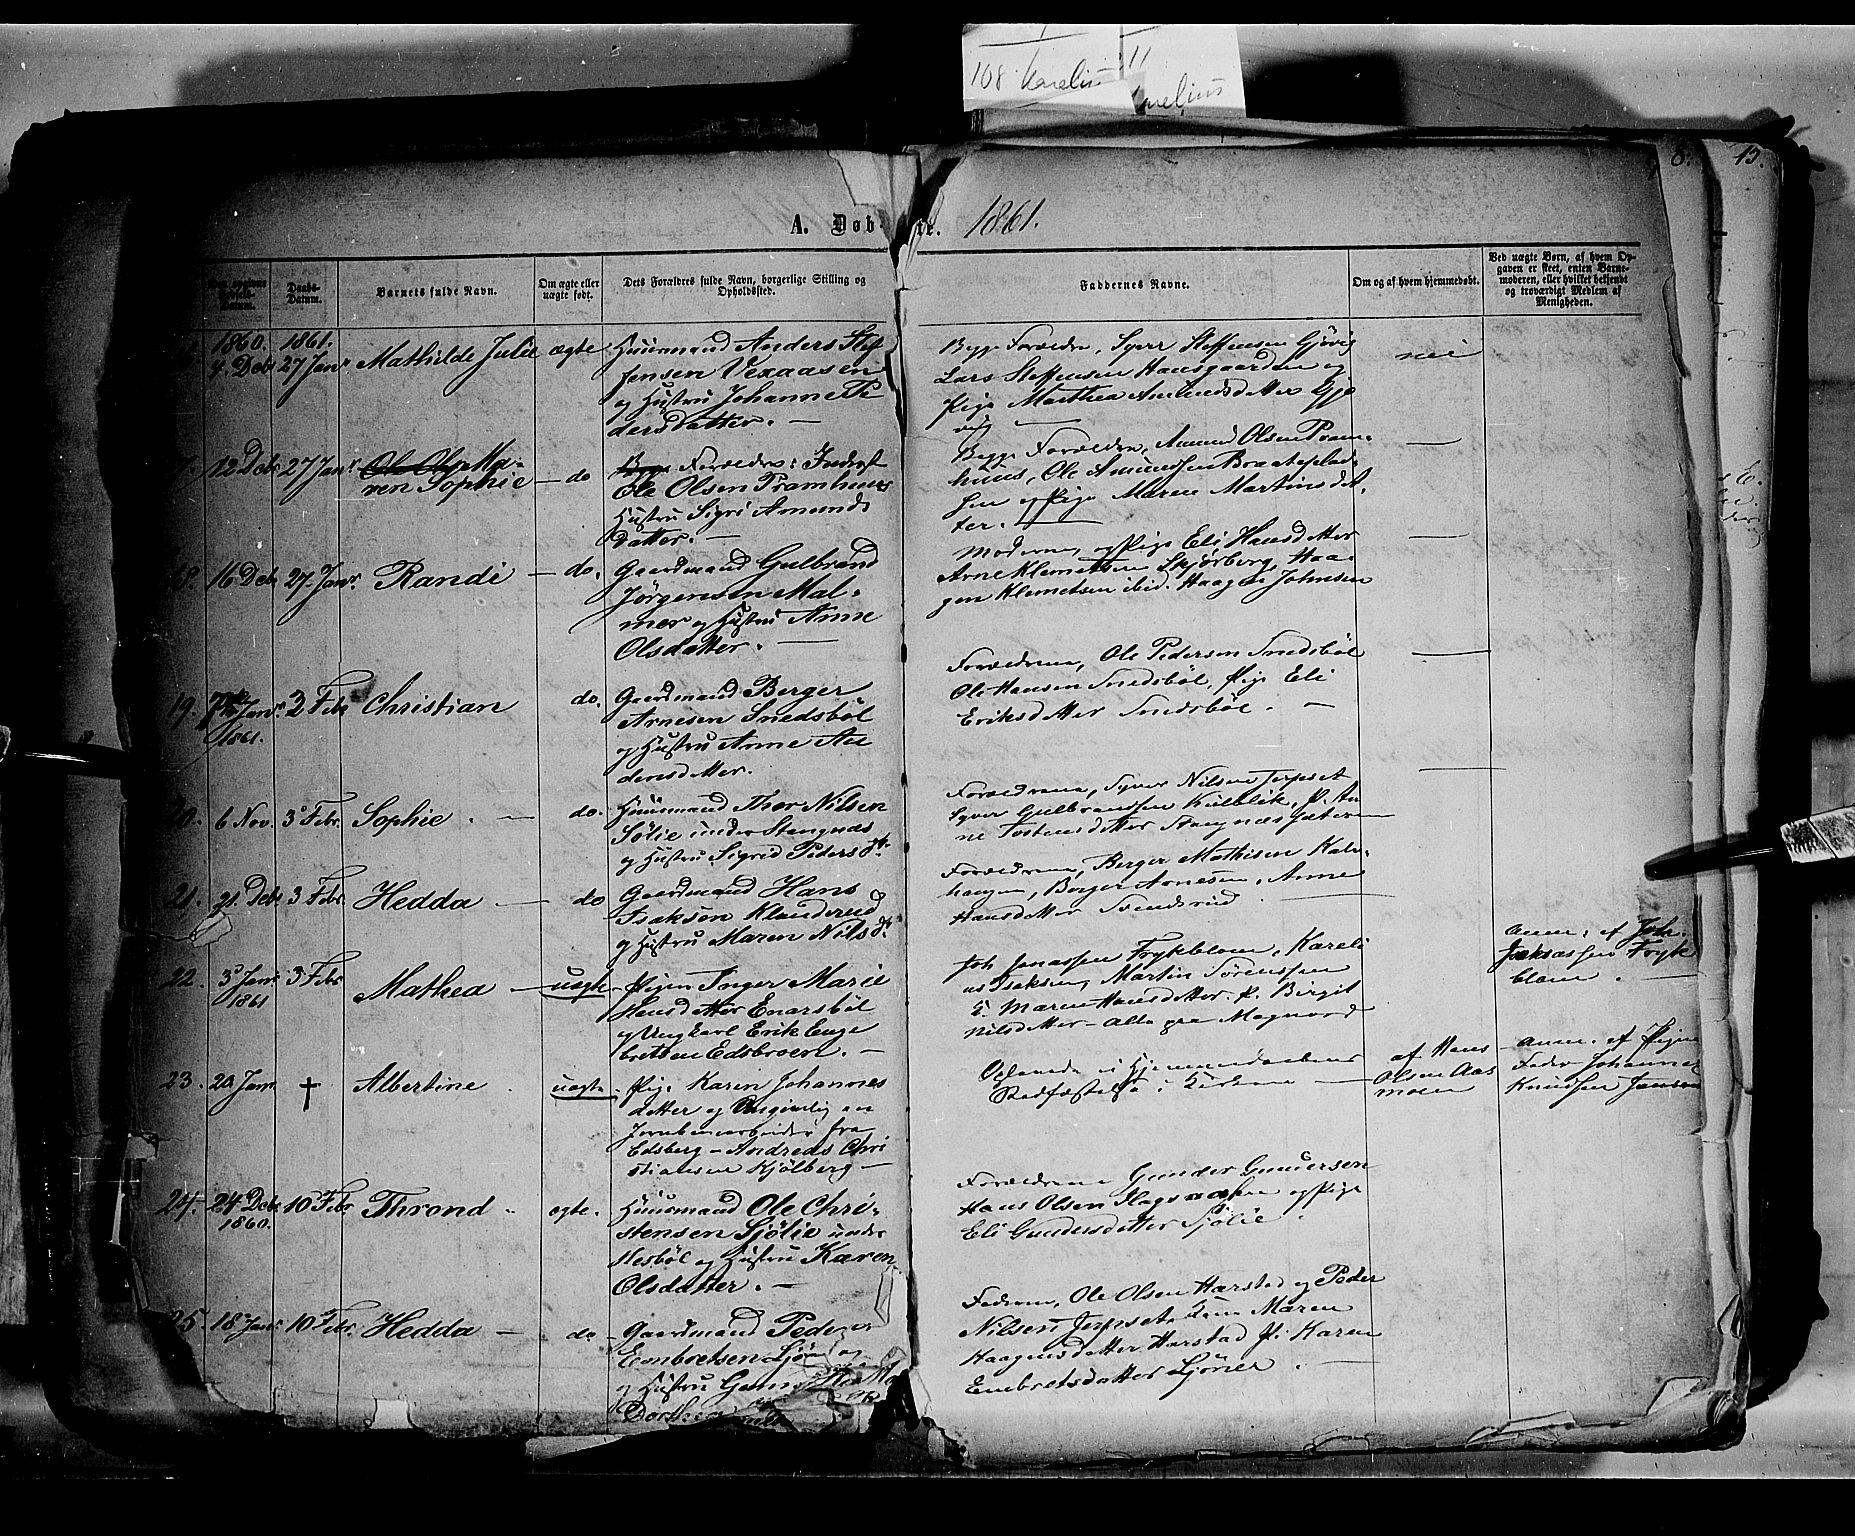 108 Karelius 11
8. 15.
A. Døbte. 1861.
Daabs-
Datum.
Barnets fulde Navn.
Om ægte eller
uægte født.
Dets Forældres fulde Navn, borgerlige Stilling og
Opholdssted.
Faddernes Navne.
Om og af hvem hjemmedøbt.
Ved uægte Børn, af hvem Op-
gaven er skeet, enten Barne-
moderen, eller hvilket bekjendt
og troværdigt Medlem af
Menigheden.
1860. 1861.
4 Debr 27 Janr Mathilde Julie ægte Huusmand Anders Stef
fensen Vexaasen
og Hustru Johanne Pe
dersdatter. —
Begge Forældre, Syver Steffensen Gjövig
Lars Steffensen Hansgaarden og
Pige Marthea Amundsdatter Gjö
vig —
nei
12 Debr 27 Janr Ole Olsen Ma-
ren Sophie — do
Begge Forældre: Inderst
Ole Olsen Pramhuus
Hustru Sigri Amunds
datter. —
Begge Forældre, Amund Olsen Pram-
huus, Ole Amundsen Braateplad-
sen og Pige Maren Martinsdat-
ter. —
18. 16 Debr 27. Janr. Randi — do.
Gaardmand Gulbrand
Jörgensen Mal-
mer og Hustru Anne
Olsdatter. —
Moderen, og Pige Eli Hansdatter
Arne Klemetsen Skjørberg, Haa-
gen Klemetsen ibid. Haagen Johnsen
19. 7de Janr 3 Febr Christian do.
1861.
Gaardmand Berger
Arnesen Snedsböl
og Hustru Anne An
dersdatter.
Forældrene, Ole Pedersen Snedsböl
Ole Hansen Snedsböl, Pige Eli
Eriksdatter Snedsböl. —
20. 6 Nov. 3 Febr. Sophie. — do.
Huusmand Thor Nilsen
Sölie under Stengnæs
og Hustru Sigrid Pedersdtr
Forældrene, Syver Nilsen Jerpset
Syver Gulbrandsen Kulblik, P. An
ne Tostensdatter Stengnæs
21. 21. Debr 3 Febr. Hedda — do
Gaardmand Hans
Isaksen Klanderud
og Hustru Maren Nilsdr
Forældrene, Berger Mathisen Kalv-
haugen, Berger Arnesen, Anne
Hansdatter Svendsrud. —
22. 3 Janr 3 Febr Mathea — uægte
1861
Pigen Inger Marie
Hansdatter Enarsböl
og Ungkarl Erik Enge
bretsen Edsbroen. —
Joh Jonassen Frykblom, Kareli
us Isaksen, Martin Sörenssen
P. Maren Hansdatter. P. Birgit
Nilsdatter — alle paa Magnord
Anm: af Joh.
Jonassen Fryk
blom. —
23. 20 Jan † Albertine uægte.
Pige Karin Johannes
datter og Angivelig en
Jernbanearbeider fra
Edsberg — Andreas Chri
stiansen Kjölberg —
Hjemmedaabens
Stadfæstelse i Kirken —
af Hans
Olsen Aas
moen
Anm. af Pigens
Fader Johannes
Knudsen Jansrud
24. 24 Debr 10 Febr Thrond ægte.
1860.
Huusmand Ole Chri-
stensen Sjölie under
Nesböl og Hustru Karen
Olsdatter. —
Forældrene Gunder Gundersen
Hans Olsen Slagsaasen og Pige
Eli Gundersdatter Sjölie.
25. 18 Janr 10 Febr. Hedda — do
Gaardmand Peder
Embretsen Sjöner
og Hustru
Dorthea
Faderen, Ole Olsen Harstad og Peder
Nilsen Jerpset, Kone Maren
Haagensdatter Harstad, P. Karen
Embretsdatter Sjöner. —